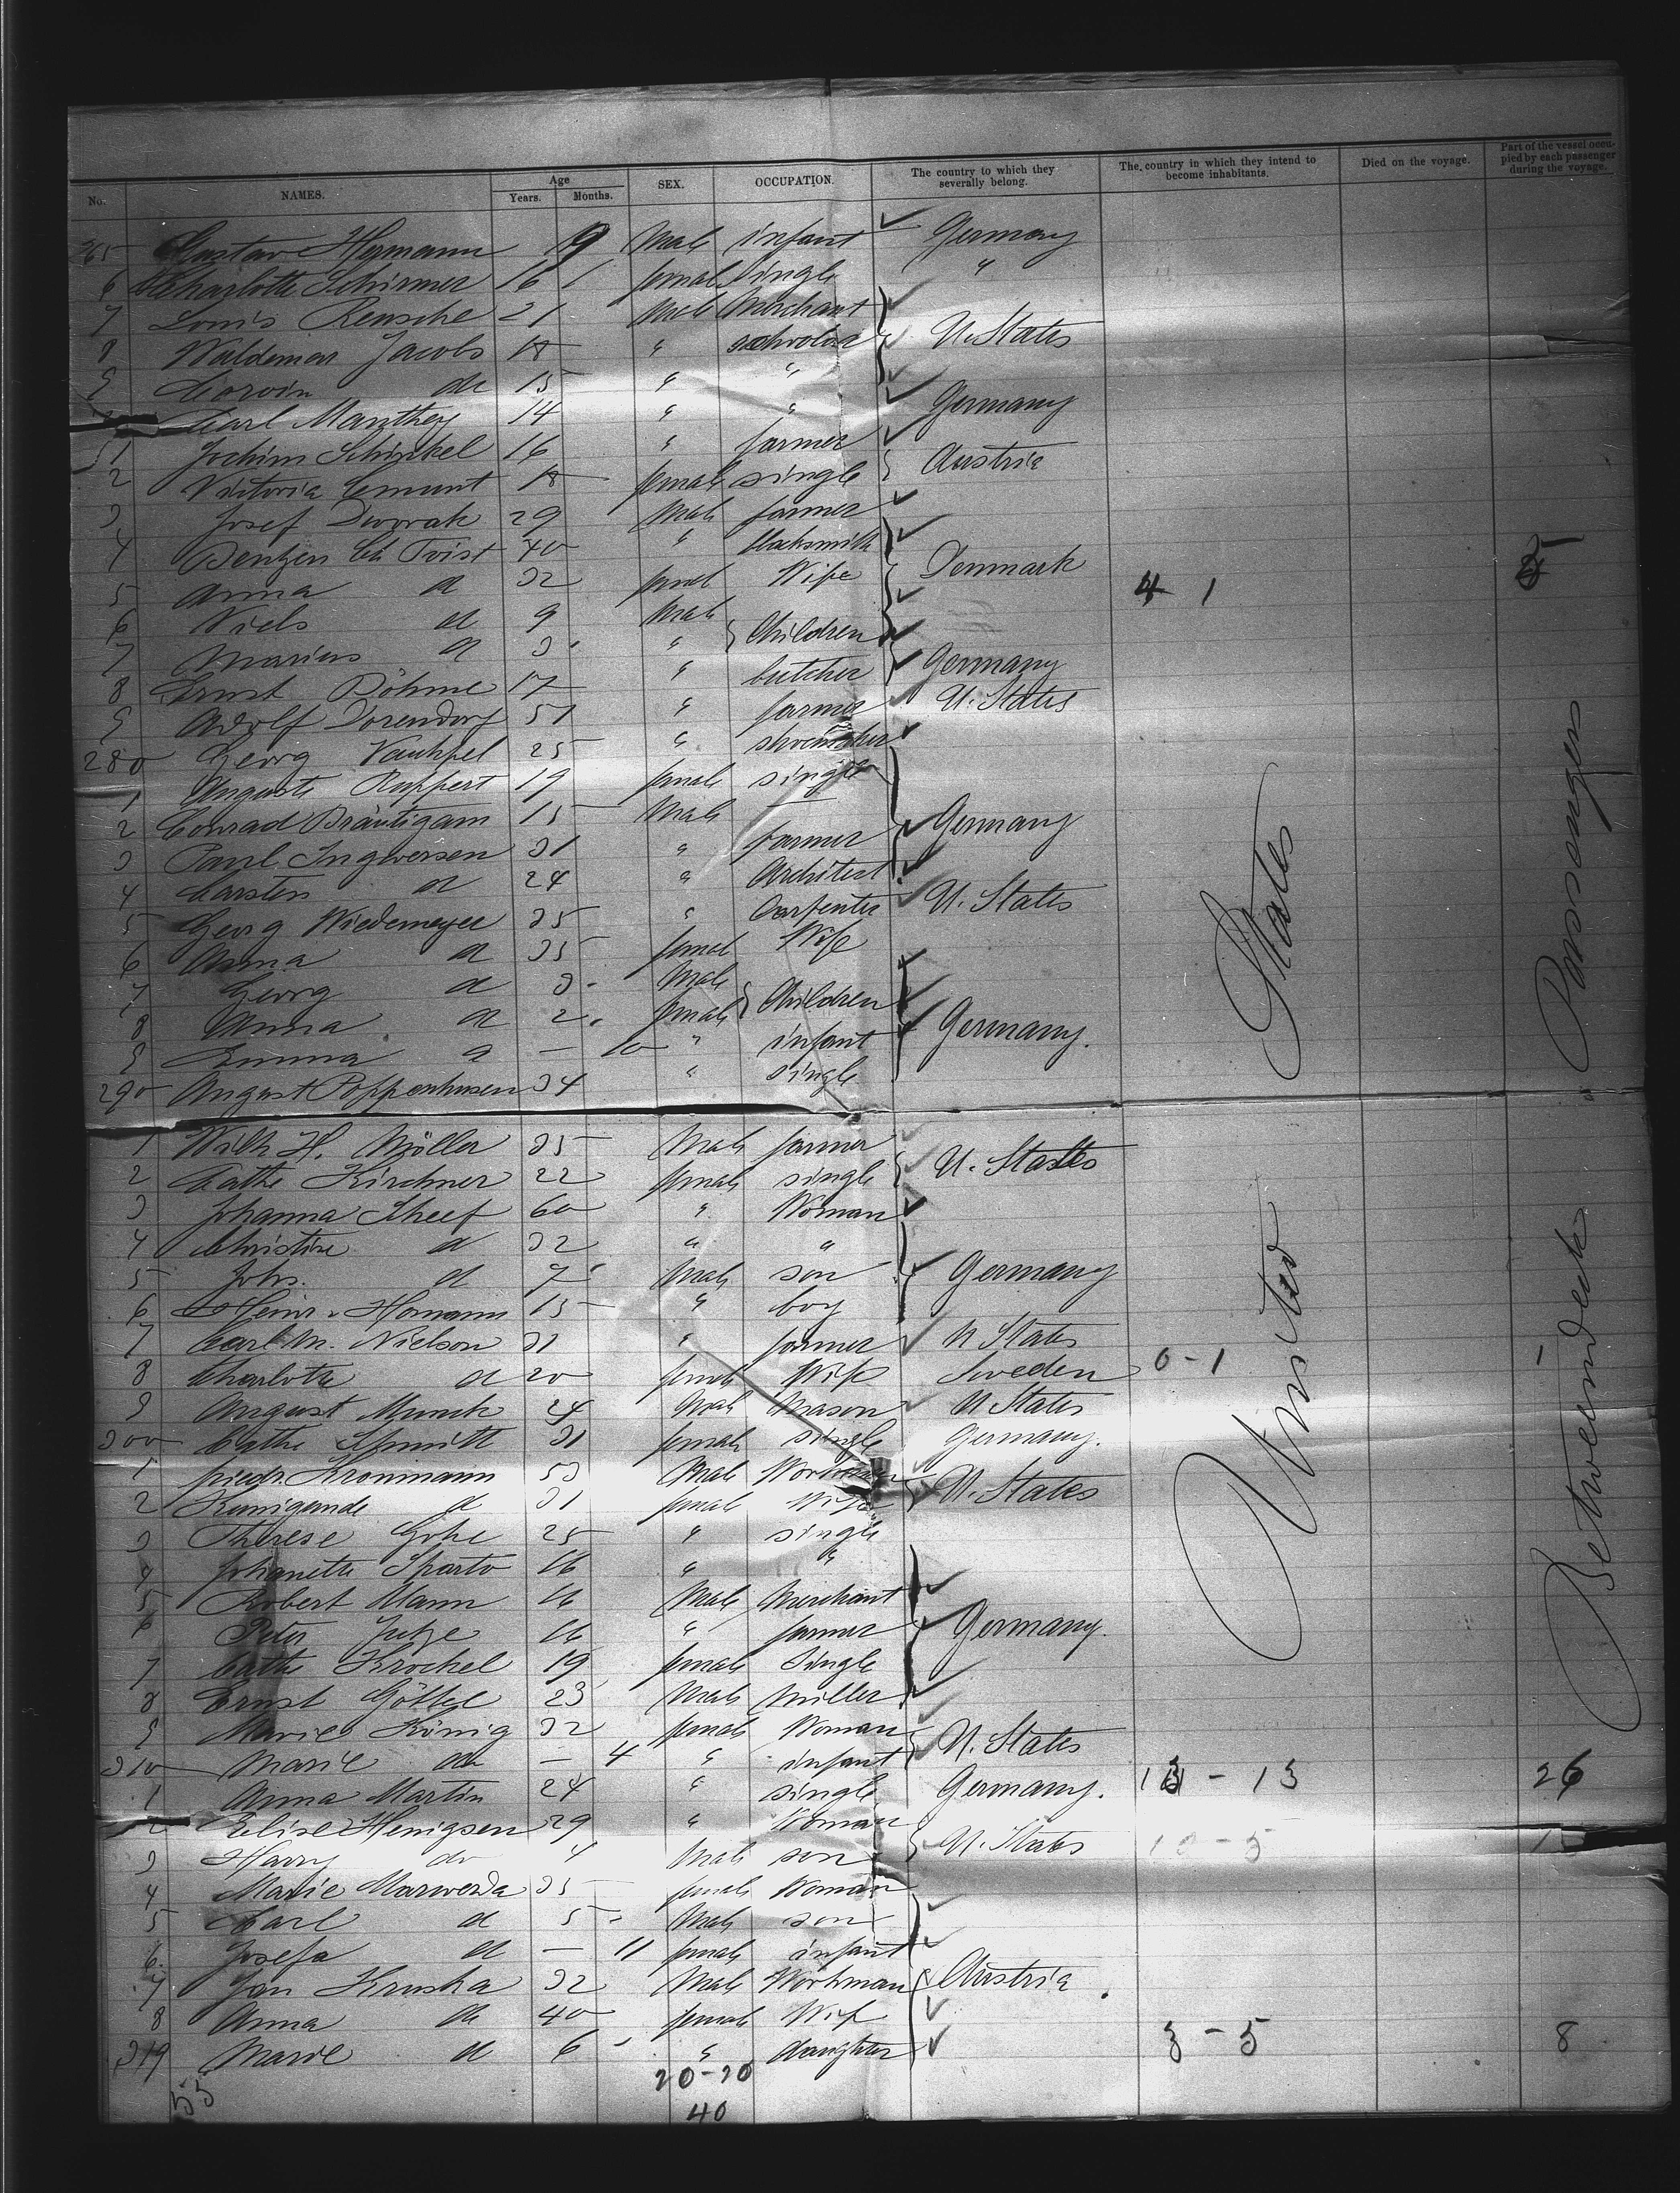 No. NAMES. Age Years. Months. SEX. OCCUPATION. The country to which they severally belong. The country in which they intend to become inhabitants. Died on the voyage. Part of the vessel occupied by each passenger during the voyage.
265 Gustav Hermann 9 Male infant Germany
6 Charlotte Schirmer 16 1 female single "
7 Louis Rensche 21 Male Merchant
8 Waldemar Jacobs 18 " scholar U. States
9 Corvin do 15 " "
Carl Manthey 14 " " Germany
51 Jochim Schinkel 16 " farmer
2 Viktoria 18 female single Austria
3 Josef Dworak 29 Male farmer
4 Bentzen Ch Tvist 40 " blacksmith
5 Anna d 32 femal Wife Denmark 4 1
6 Niels d 9 Male
7 Marius d 3 " Children
8 Ernst Böhme 17 " butcher Germany
9 Adolf Dorendorf 51 " farmer U. States
280 Georg Vauhpel 25 " shoemaker
1 Auguste Ruppert 19 female single
2 Conrad Bräutigam 15 Male —
3 Paul Ingwersen 31 " Farmer Germany
4 Carsten d 24 " Architect
5 Georg Wiedemeyer 35 " Carpenter U. States
6 Anna d 35 femal Wife
7 Georg d 3 Male
8 Anna d 2 female Children
9 Emma d — 10 " infant Germany.
290 August Poppenhusen 34 " single
1 Wilh H. Möller 35 Male farmer
2 Cathe Kirchner 22 female single U. States
3 Johanna Scheef 60 " Woman
4 Christine d 32 " "
5 Johs. d 7 Male son Germany
6 Heinr. Homann 15 " boy
7 Carl M. Nielson 31 " farmer U States
8 Charlotte d 20 female Wife Sweden 0-1 1
9 August Munck 24 Male Mason U States
300 Cathe Schmitt 31 female single Germany.
1 friedr. Kronimann 53 Male Workman
2 Kunigunde d 31 female Wife U. States
3 Therese Gohe 25 " single
4 Johanette Sparto 16 " "
5 Robert Mann 16 Male Merchant
6 Peter Jutze 16 " farmer Germany.
7 Cathe Krockel 19 female Single
8 Ernst Göttel 23 Male Miller
9 Marie König 32 female Woman
310 Marie do — 4 " infant U. States
1 Anna Martin 24 " single Germany. - 13 26
2 Elise Henigsen 29 " Woman
3 Harry do 4 Male son U. States 10-5
4 Marie Marwerda 35 female Woman
5 Carl d 5 Male son
6. Josefa d — 11 female infant
7 Jan Kruska 32 Male Workman Austria
8 Anna do 40 female Wife
319 Marie d 6 " daughter 3-5 8
55
20-20
40
United States
Betweendeck Passengers